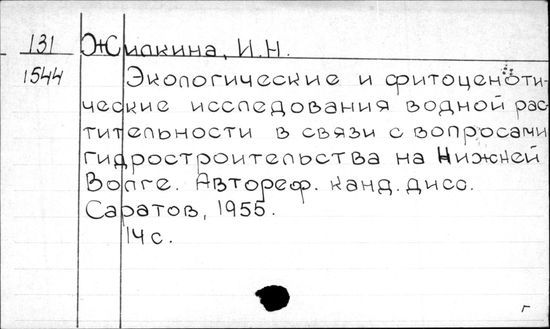 131 Жилкина, И.Н.
1544 Экологические и фитоценоти-
ческие исследования водной рас
тительности в связи с вопросами
гидростроительства на Нижней
Волге. Автореф. канд. дисс.
Саратов, 1955.
14 с.
г